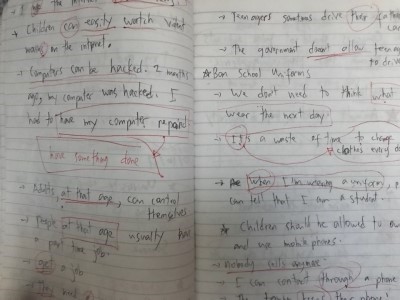 the internet
→ Children can easily watch violent
movies on the internet.
→ Computers can be hacked. 2 months
ago, my computer was hacked. I
had to have my computer repaired
have something done
→ Adults, at that age, can control
themselves
→ People at that age usually have
a part time job.
→ get a job
→ Teenagers sometimes drive their
→ The government doesn't allow
to drive
☆ Ban School Uniforms
→ We don't need to think what
wear the next day
→ It is a waste of time to change
clothes every
→ when I am wearing a uniform,
can tell that I am a student.
☆ Children should be allowed to
and use mobile phones.
→ nobody sells anymore
→ I can contact through a phone